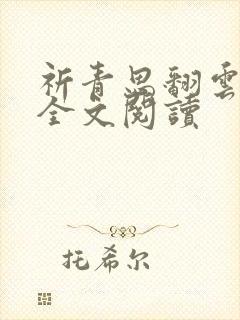 祈青思翻雲
全文閱讀
托希尔